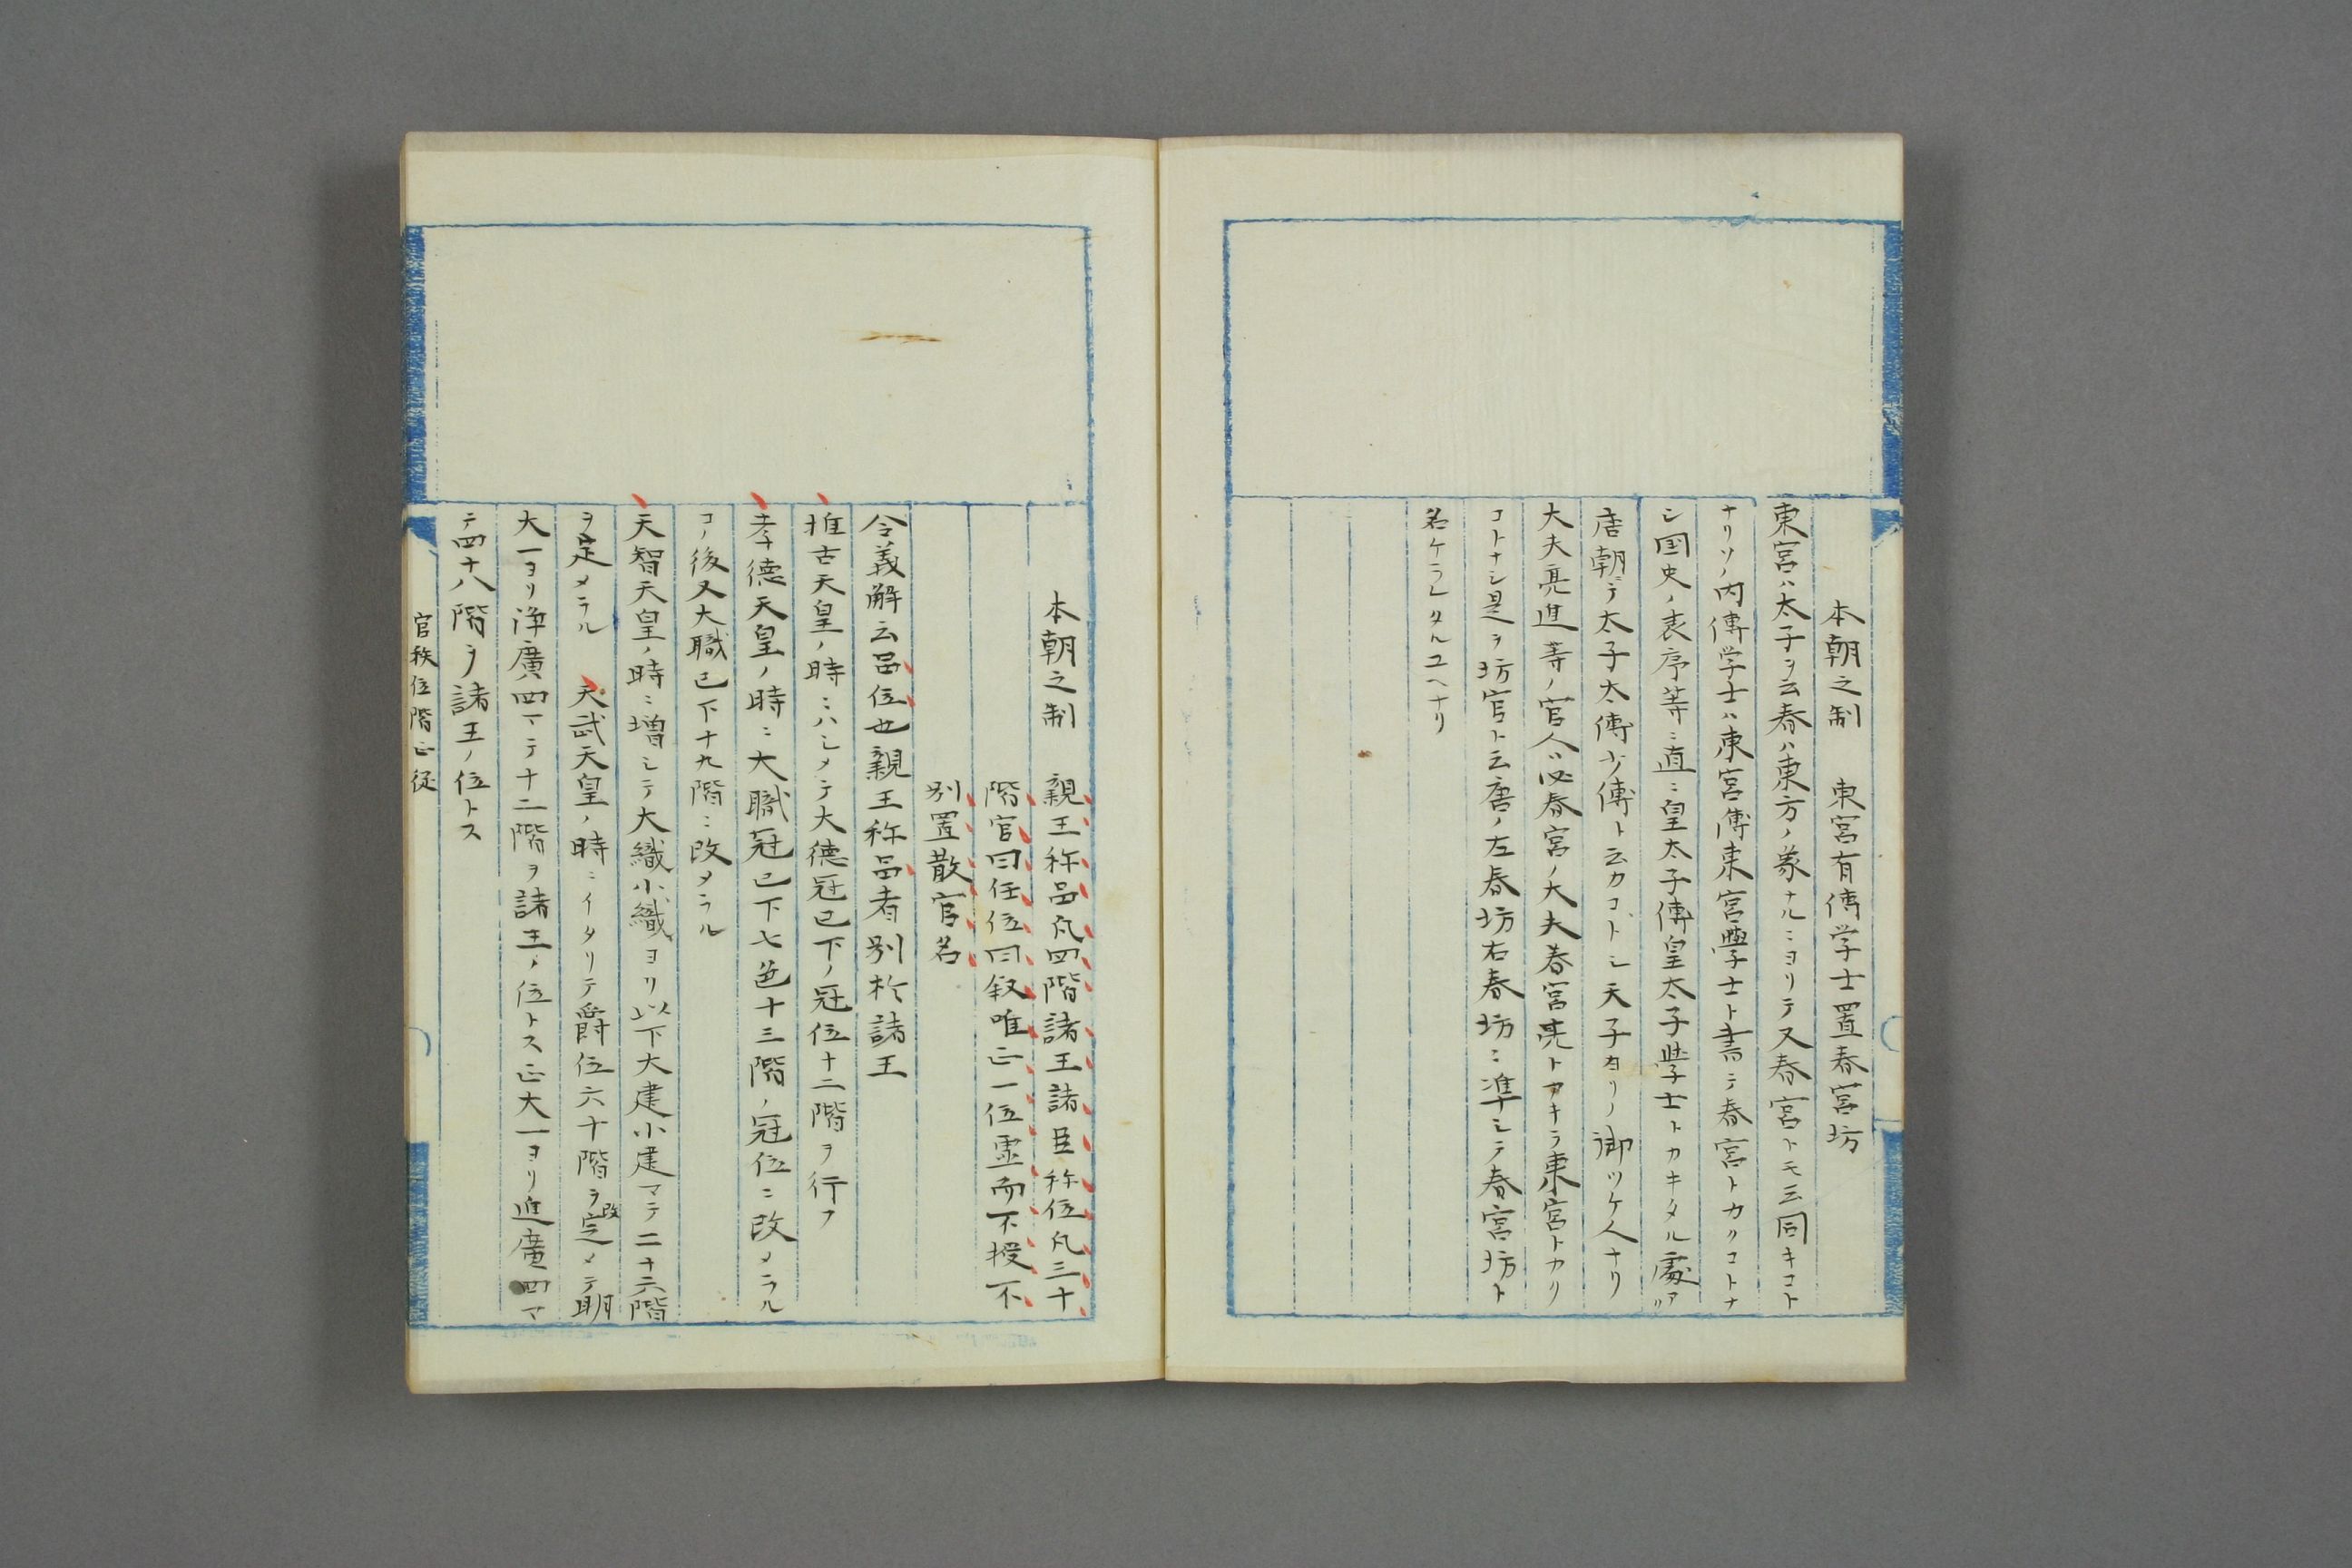 本朝之制　東宮有傅学士置春宮坊
東宮ハ太子ヲ云春ハ東方ノ象ナルニヨリテ又春宮トモ云同キコト
ナリソノ内傅学士ハ東宮傅東宮學士ト書テ春宮トカクコトナ
シ国史ノ表序等ニ直ニ皇太子傅皇太子學士トカキタル處アリ
唐朝ニテ太子太傅少傅ト云カコトシ天子ヨリノ御ツケ人ナリ
大夫亮進等ノ官人ハ必春宮ノ大夫春宮亮トカキテ東宮トカク
コトナシ是ヲ坊官ト云唐ノ左春坊右春坊ニ準シテ春宮坊ト
名ケラレタルユヘナリ
本朝之制　親王称品凡四階諸王諸臣称位凡三十
階官曰任位曰叙唯正一位虚而不授不
別置散官名
令義解云品位也親王称品者別於諸王
推古天皇ノ時ニハシメテ大徳冠已下ノ冠位十二階ヲ行フ
孝徳天皇ノ時ニ大職冠已下七色十三階ノ冠位ニ改メラル
コノ後又大職已下十九階ニ改メラル
天智天皇ノ時ニ増シテ大織小織ヨリ以下大建小建マテ二十六階
ヲ定メラル　天武天皇ノ時ニイタリテ爵位六十階ヲ改定メテ明
大一ヨリ浄廣四マテ十二階ヲ諸王ノ位トス正大一ヨリ進廣四マ
テ四十八階ヲ諸王ノ位トス
官秩位階正従